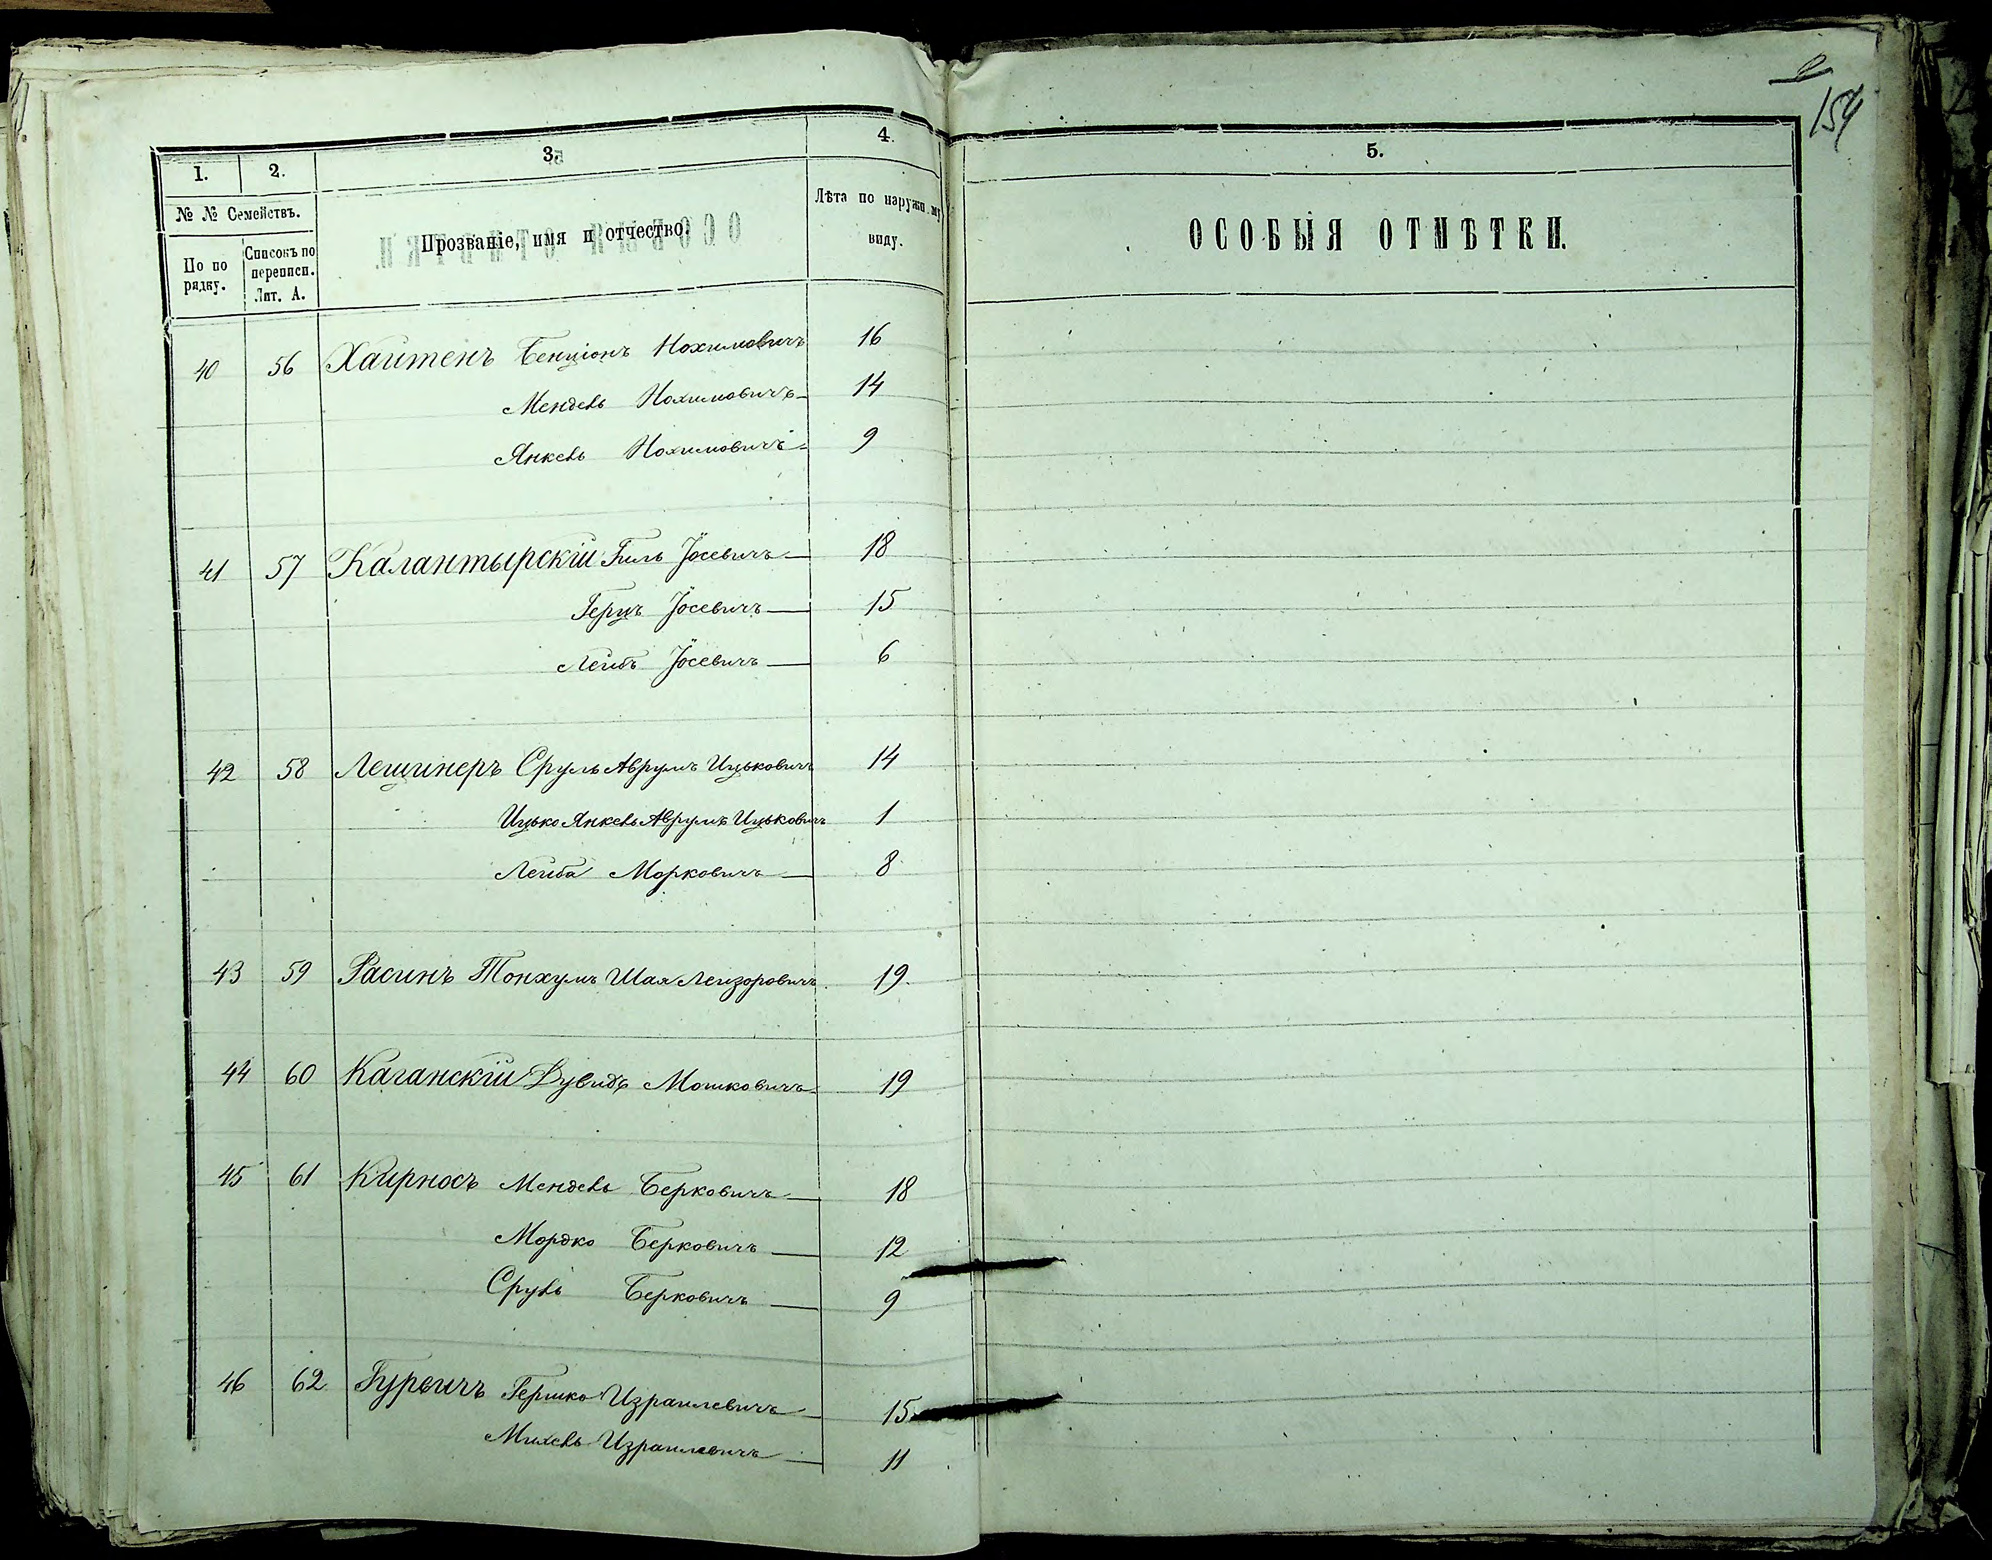 154
1. 2. 3. 4. 5.
№ № Семействъ.
По по рядку.
Списокъ по переписи. Лит. А.
Прозваніе, имя и отчество.
Лѣта по наружному виду.
ОСОБЫЯ ОТМѢТКИ.
40 56 Хаитенъ Бенціонъ Нохимовичъ 16
Мендель Нохимовичъ 14
Янкель Нохимовичъ 9
41 57 Калантырскій Гиль Іосевичъ 18
Герцъ Іосевичъ 15
Леибъ Іосевичъ 6
42 58 Лещинеръ Сруль Аврумъ Ицьковичъ 14
Ицько Янкель Аврумъ Ицьковичъ 1
Леиба Морковичъ 8
43 59 Расинъ Тонхумъ Шая Леизоровичъ 19
44 60 Каганскій Дувидъ Мошковичъ 19
45 61 Кирносъ Мендель Берковичъ 18
Мордко Берковичъ 12
Сруль Берковичъ 9
46 62 Гурвичъ Гершко Израилевичъ 15
Михель Израилевичъ 11